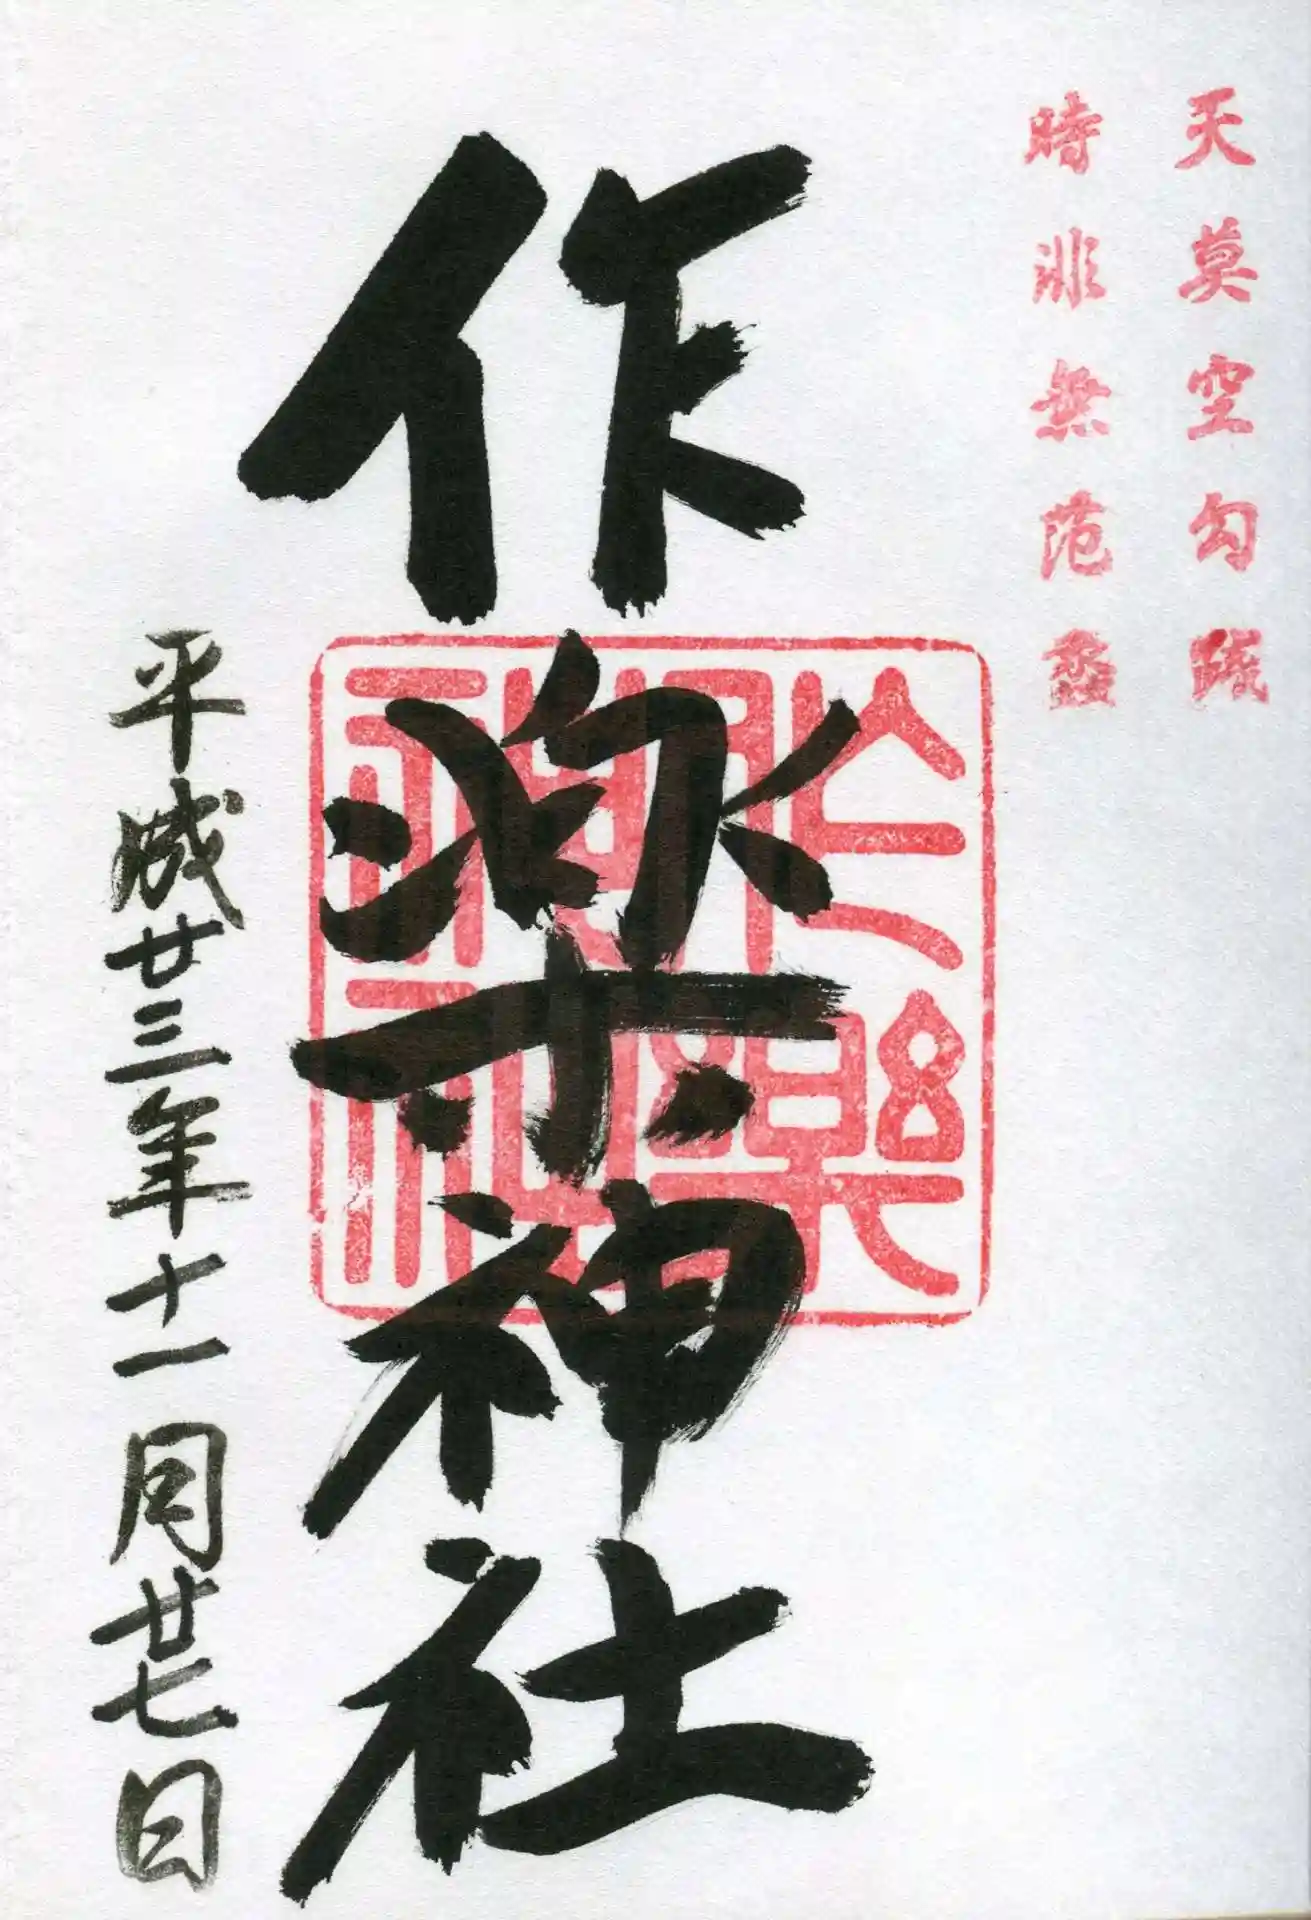 天莫空勾践
時非無范蠡
作楽神社
作樂神社
平成廿三年十一月廿七日